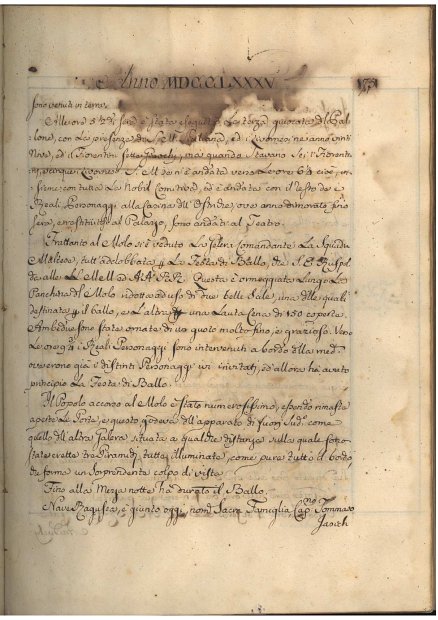 Anno MDCCLXXXV
sono venuti in terra.
Alle ore 5 ½ di sera è stata eseguita la terza giuocata di Pal-
lone, con la presenza di S. M.
Nove, ed i Fiorentini sette
S. M. si è andata verso le ore 6 ½ cioè, in-
sieme con tutta la Nobil Comitiva, ed è andata con il resto de'
Reali Personaggi alla Casina dell'Ostriche, ove anno dimorato fino
sera, e restituitisi al Palazzo, sono andati al Teatro.
Frattanto al Molo si è veduto la Galera Comandante la Squadra
Maltese, tutt'addobbata per la Festa di Ballo, da S. E. Ruspol
da alle LL. MM. ed AA. RR. Questa è ormeggiata lungo la
Panchina del Molo ridotta ad uso di due belle Sale, una delle quali
destinata per il ballo, e l'altra per una Lauta Cena di 150 coperte.
Ambedue sono state ornate di un gusto molto fino, e grazioso. Verso
le ore 9 ½ i Reali Personaggi sono intervenuti a bordo della med.
ove erono già i distinti Personaggi ivi invitati, ed allora ha avuto
principio la Festa di Ballo.
Il Popolo accorso al Molo è stato numerosissimo, essendo rimaste
aperte le Porte, e questo godeva dell'apparato di fuori come
quello dell'altra Galera situata a qualche distanza sulla quale sono
state erette tre Piramidi tutte illuminate, come pure tutto il bordo,
che forma un sorprendente colpo di vista.
Fino alla Mezza notte ha durato il Ballo.
Nave Ragusea, è giunto oggi, nom. Sacra Famiglia, Cap.no Tommaso